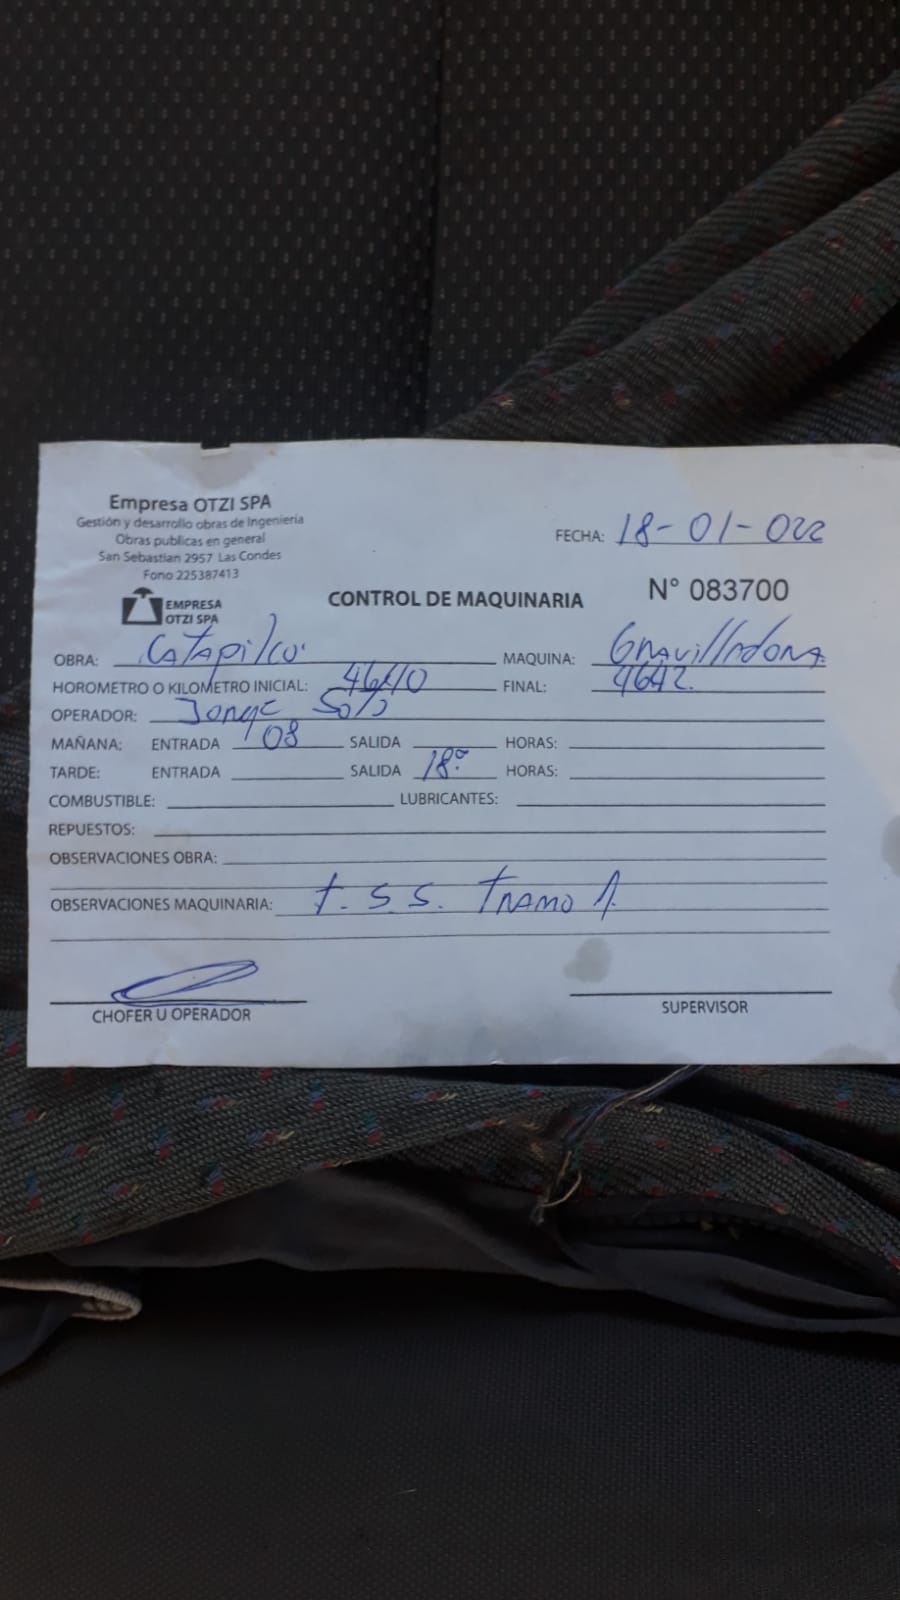 Empresa OTZI SPA
Gestión y desarrollo obras de Ingeniería
Obras publicas en general
San Sebastian 2957 Las Condes
Fono 225387413
EMPRESA
OTZI SPA
FECHA: 18-01-022
CONTROL DE MAQUINARIA
N° 083700
OBRA: Catapilco MAQUINA: Gravilladora
HOROMETRO O KILOMETRO INICIAL: 4640 FINAL: 4642.
OPERADOR: Jorge
MAÑANA: ENTRADA 08 SALIDA HORAS:
TARDE: ENTRADA SALIDA 18° HORAS:
COMBUSTIBLE: LUBRICANTES:
REPUESTOS:
OBSERVACIONES OBRA:
OBSERVACIONES MAQUINARIA: t. S.S. Tramo 1.
CHOFER U OPERADOR SUPERVISOR